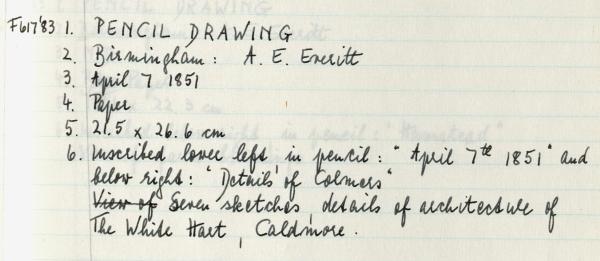 F617'83 1. PENCIL DRAWING
2. Birmingham: A. E. Everitt
3. April 7 1851
4. Paper
5. 21.5 x 26.6 cm
6. Inscribed lower left in pencil: "April 7th 1851" and
below right: "Details of Colmers"
View of Seven sketches, details of architecture of
The White Hart, Caldmore.